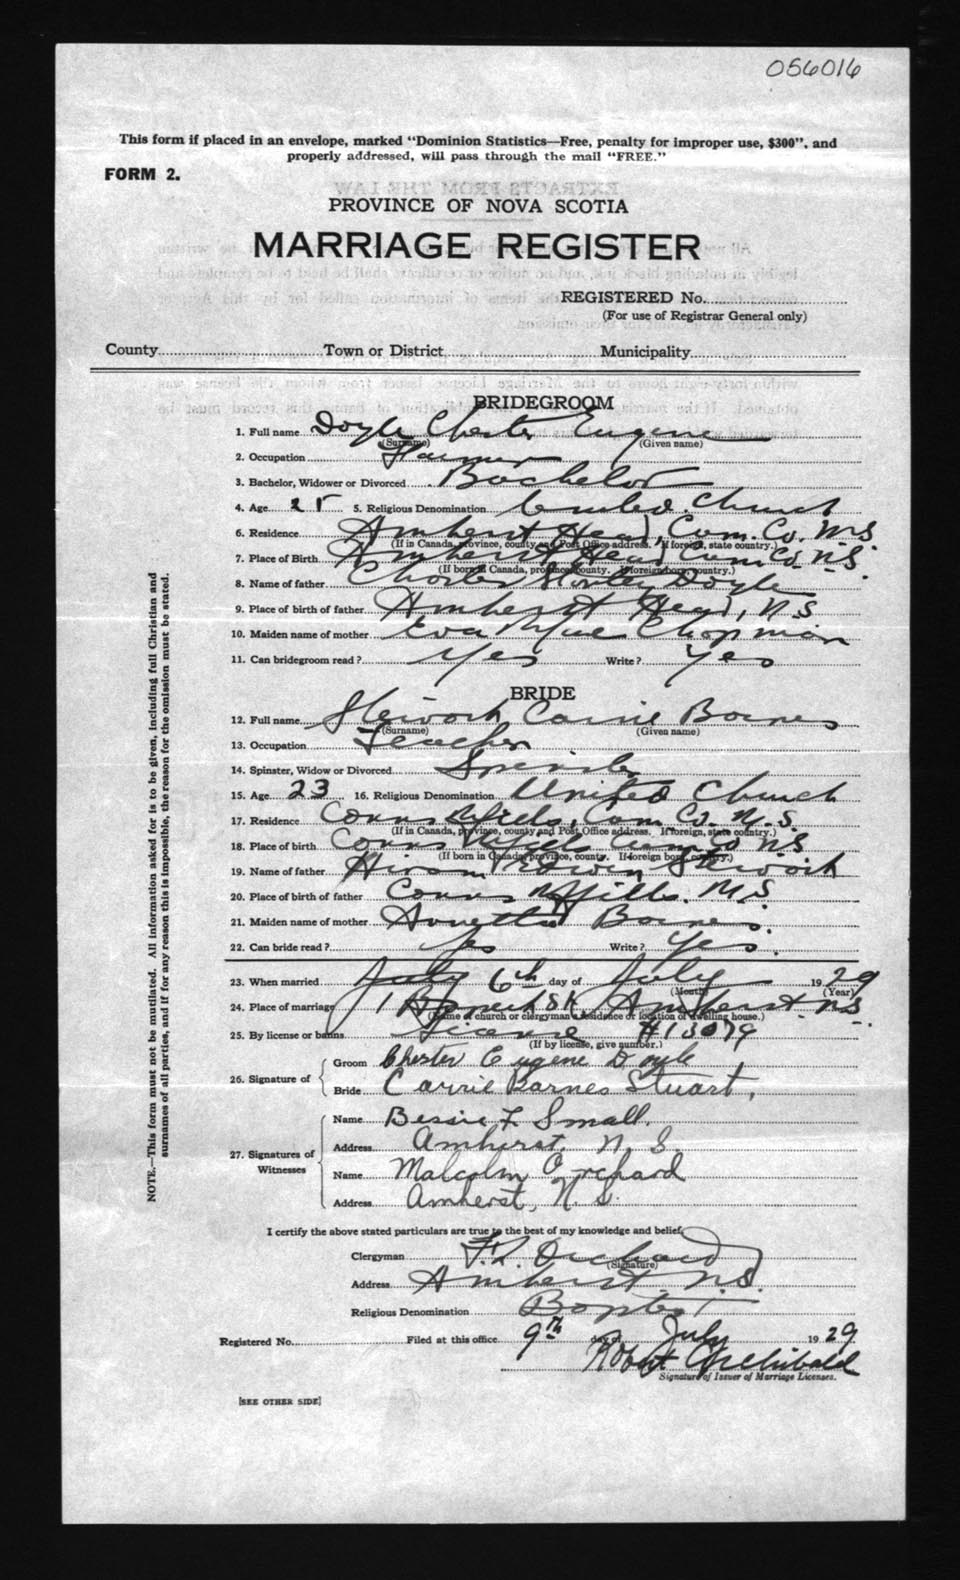 056016
This form if placed in an envelope, marked "Dominion Statistics—Free, penalty for improper use, $300", and
properly addressed, will pass through the mail "FREE."
FORM 2.
PROVINCE OF NOVA SCOTIA
MARRIAGE REGISTER
REGISTERED No.
(For use of Registrar General only)
County Town or District Municipality
BRIDEGROOM
1. Full name Doyle Chester Eugene
(Surname) (Given name)
2. Occupation Farmer
3. Bachelor, Widower or Divorced Bachelor
4. Age 25 5. Religious Denomination United Church
6. Residence Amherst Head, Cum. Co. N.S.
(If in Canada, province, county and Post Office address. If foreign, state country.)
7. Place of Birth Amherst Head Cum Co. N.S.
(If born in Canada, province, county. If foreign born, country.)
8. Name of father Chester Doyle
9. Place of birth of father Amherst Head, N.S.
10. Maiden name of mother Eva Mae Chapman
11. Can bridegroom read? Yes Write? Yes
BRIDE
12. Full name Stewart Carrie Barnes
(Surname) (Given name)
13. Occupation Teacher
14. Spinster, Widow or Divorced Spinster
15. Age 23 16. Religious Denomination United Church
17. Residence Conns Mills, Cum. Co. N.S.
(If in Canada, province, county and Post Office address. If foreign, state country.)
18. Place of birth Conns Mills Cum Co N.S.
(If born in Canada, province, county. If foreign born, country.)
19. Name of father Hiram Edwin Stewart
20. Place of birth of father Conns Mills. N.S.
21. Maiden name of mother Annetta Barnes.
22. Can bride read? Yes Write? Yes.
23. When married July 6th day of July 1929
(Month) (Year)
24. Place of marriage 1 St. Amherst N.S.
(Name of church or clergyman residence or location of dwelling house.)
25. By license or banns License #13079
(If by license, give number.)
26. Signature of
Groom Chester Eugene Doyle
Bride Carrie Barnes Stuart,
27. Signatures of Witnesses
Name Bessie F. Small.
Address Amherst, N. S.
Name Malcolm Orchard
Address Amherst, N. S.
I certify the above stated particulars are true to the best of my knowledge and belief.
Clergyman Orchard
(Signature)
Address Amherst N.S.
Religious Denomination Baptist
Registered No. Filed at this office 9th day of July 1929
Robert Archibald
Signature of Issuer of Marriage Licenses.
[SEE OTHER SIDE]
NOTE.—This form must not be mutilated. All information asked for is to be given, including full Christian and
surnames of all parties, and if for any reason this is impossible, the reason for the omission must be stated.